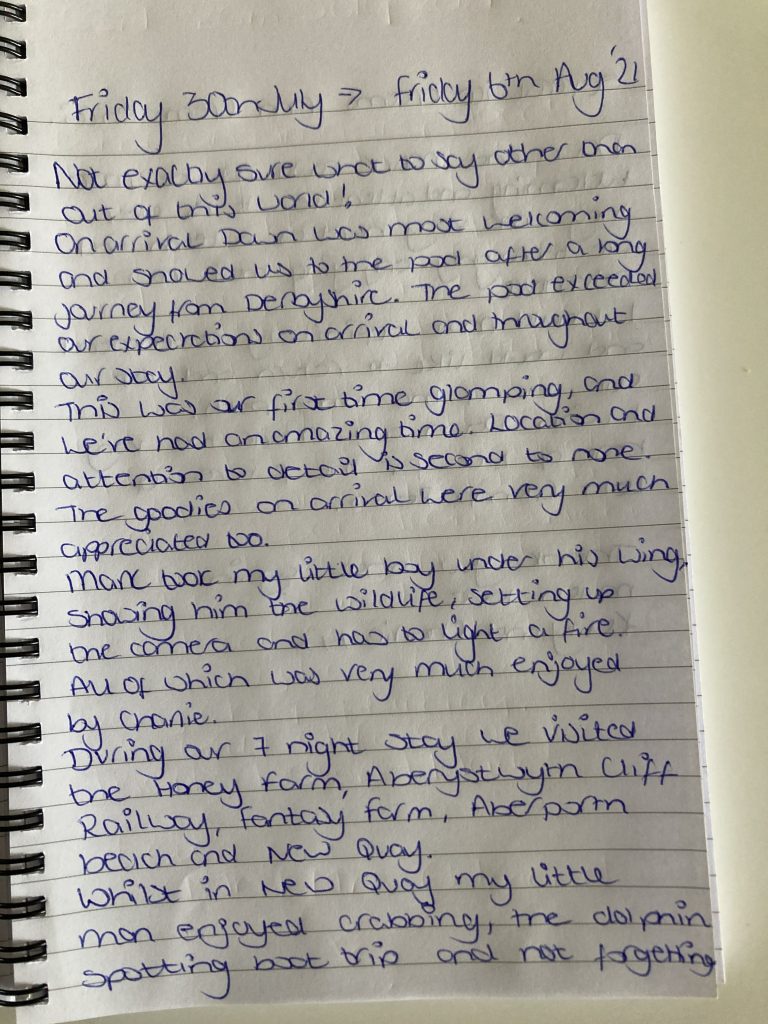 Friday 30th July → Friday 6th Aug '21
Not exactly sure what to say other than
out of this world!
On arrival Dawn was most welcoming
and showed us to the pod after a long
journey from Derbyshire. The pod exceeded
our expectations on arrival and throughout
our stay.
This was our first time glamping, and
we've had an amazing time. Location and
attention to detail is second to none.
The goodies on arrival were very much
appreciated too.
Mark took my little boy under his wing,
showing him the wildlife, setting up
the camera and how to light a fire.
All of which was very much enjoyed
by Charlie.
During our 7 night stay we visited
the Honey farm, Aberystwyth Cliff
Railway, Fantasy farm, Aberporth
beach and New Quay.
Whilst in New Quay my little
man enjoyed crabbing, the dolphin
spotting boat trip and not forgetting